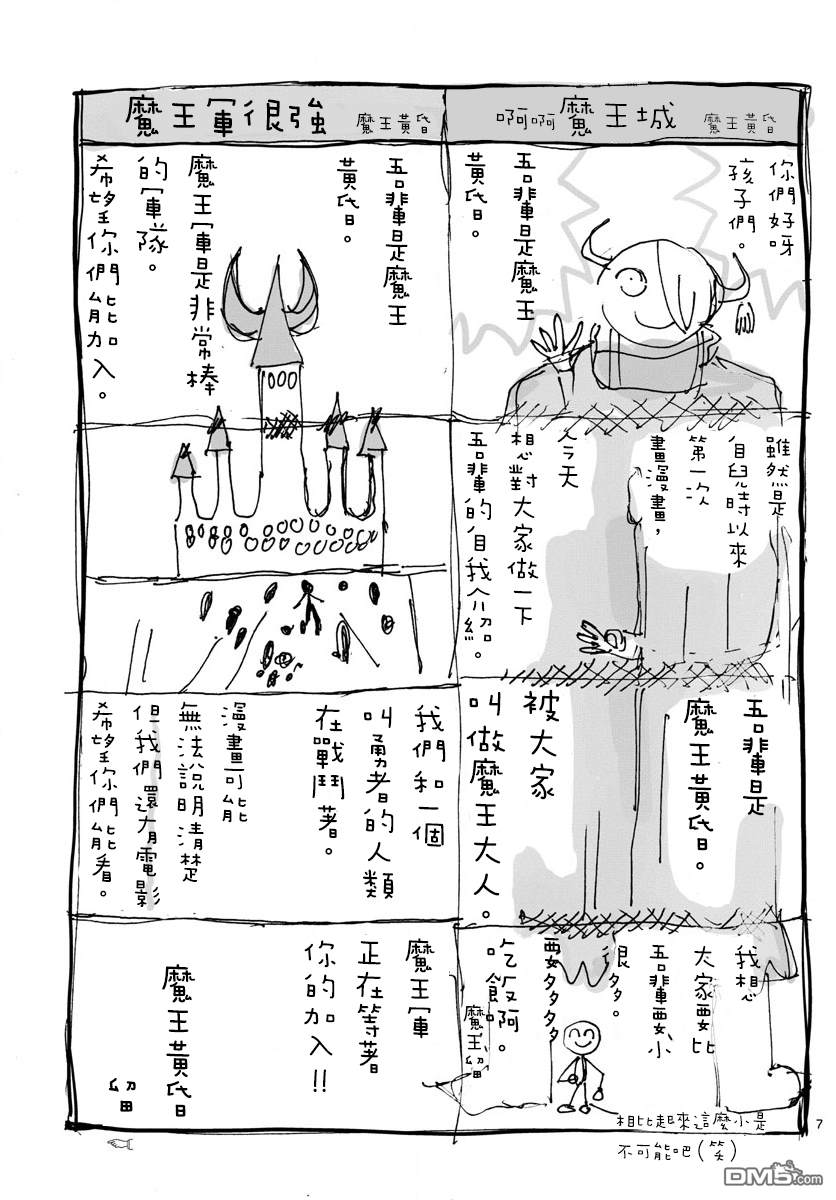 啊啊魔王城 魔王黃昏
你們好呀
孩子們。
吾輩是魔王
黃昏。
雖然是
自兒時以來
第一次
畫漫畫，
今天
想對大家做一下
吾輩的自我介紹。
吾輩是
魔王黃昏。
被大家
叫做魔王大人。
我想
大家要比
吾輩要小
很多。
要多多
吃飯啊。
魔王留
相比起來這麼小是
不可能吧（笑）
魔王軍很強 魔王黃昏
吾輩是魔王
黃昏。
魔王軍是非常棒
的軍隊。
希望你們能加入。
我們和一個
叫勇者的人類
在戰鬥著。
漫畫可能
無法說明清楚
但我們還有電影
希望你們能看。
魔王軍
正在等著
你的加入!!
魔王黃昏
留
7
DM5.com